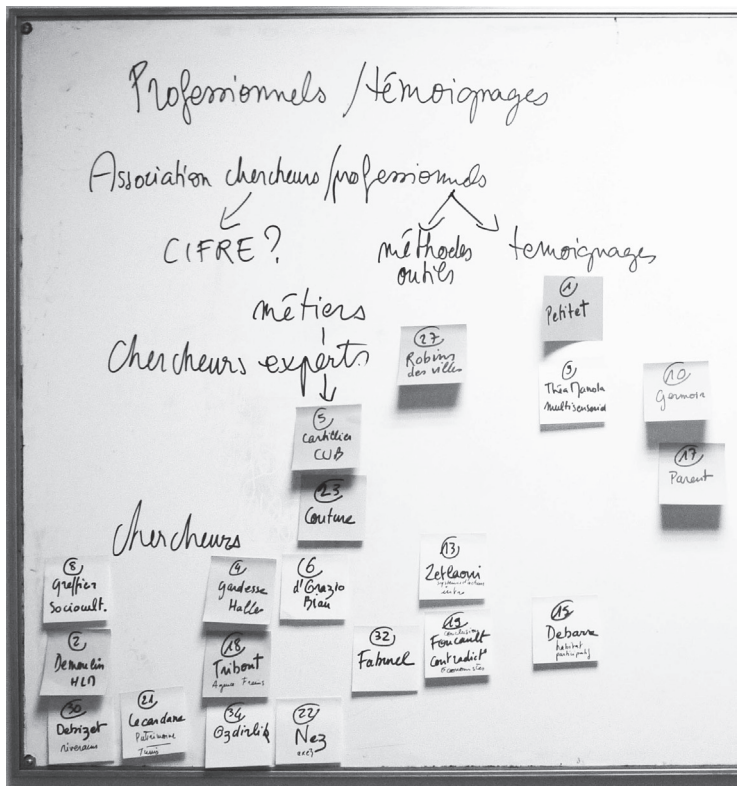 Professionnels / témoignages
Association chercheurs/professionnels
CIFRE ?
méthodes
outils
temoignages
métiers
Chercheurs experts
1
Petitet
27
Robins
des villes
9
Théa Manola
multisensoriel
10
Germain
5
Cartillier
CUB
17
Parent
23
Couture
Chercheurs
8
Greffier
Sociocult.
4
Gardesse
Halles
6
d'Orazio
Blau
13
Zetlaoui
2
Demoulin
HLM
18
Tribout
32
Faburel
19
conclusion
Foucault
Contradict°
économistes
15
Debarre
habitat
participatif
30
Debizet
riverains
21
Lecardane
Patrimoine
Tunis
34
Ozdirlik
22
Nez